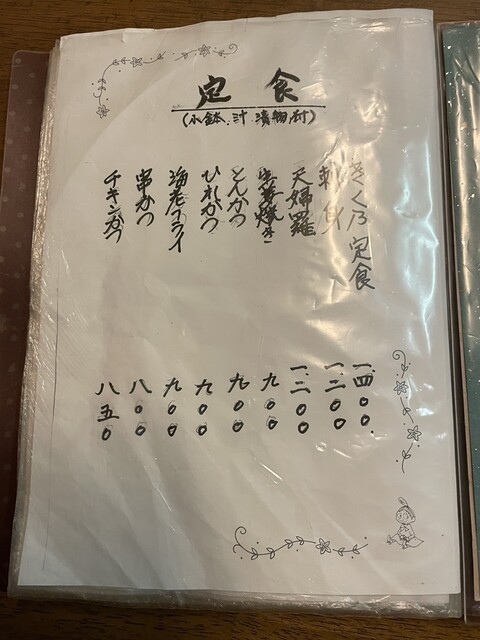 定食
(小鉢.汁.漬物付)
きく乃定食 一四〇〇
刺身 一二〇〇
天婦羅 一二〇〇
生姜焼き 九〇〇
とんかつ 九〇〇
ひれかつ 九〇〇
海老フライ 九〇〇
串かつ 八〇〇
チキンかつ 八五〇